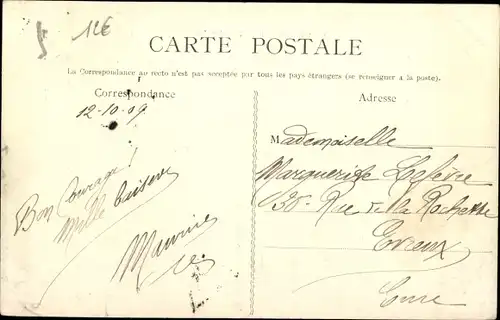 12E
CARTE POSTALE
La Correspondance au recto n'est pas acceptée par tous les pays étrangers (se renseigner à la poste).
Correspondance
Adresse
12-10-09
Mademoiselle
Marguerite Lefèvre
Rue de la Rochette
Evreux
Eure
Bon Courage!
Mille baisers
Maurice